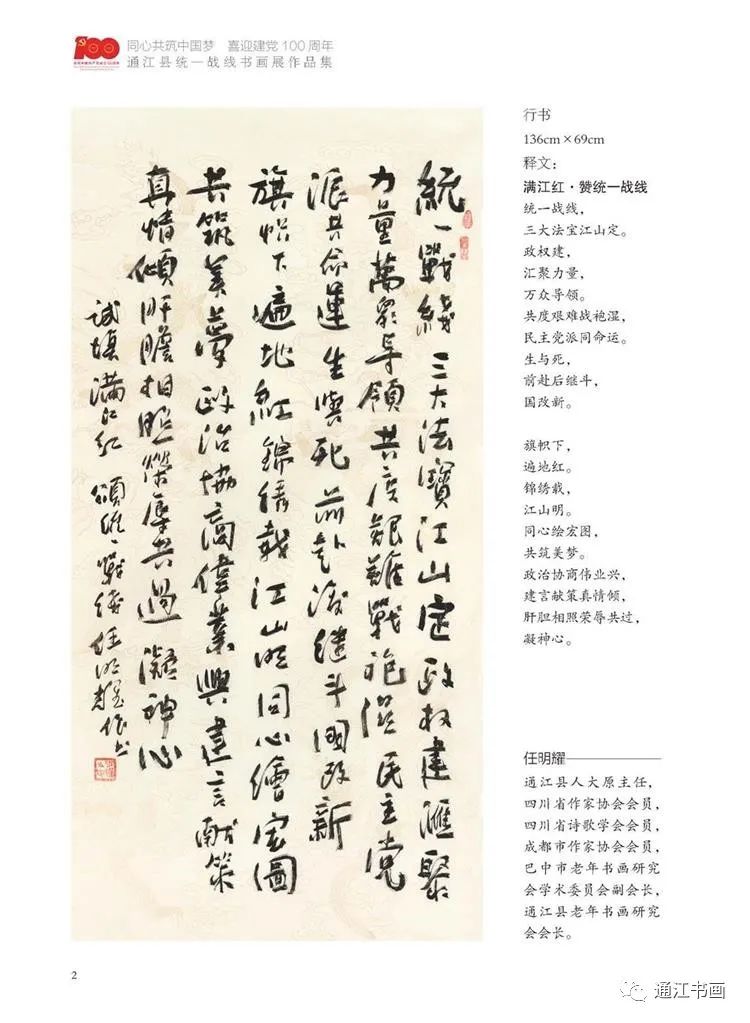 同心共筑中国梦 喜迎建党100周年
通江县统一战线书画展作品集
統一戰綫三大法寶江山定政权建滙聚
力量萬眾导領共度艱難戰袍湿民主党
派共命運生與死前赴後继斗國改新
旗帜下遍地紅錦绣載江山明同心繪宏圖
共筑美夢政治協商偉業興建言献策
真情倾肝膽相照榮辱共過凝神心
试填满江红颂统一戰线任明耀作书
行书
136cm×69cm
释文：
满江红·赞统一战线
统一战线，
三大法宝江山定。
政权建，
汇聚力量，
万众导领。
共度艰难战袍湿，
民主党派同命运。
生与死，
前赴后继斗，
国改新。
旗帜下，
遍地红。
锦绣载，
江山明。
同心绘宏图，
共筑美梦。
政治协商伟业兴，
建言献策真情倾，
肝胆相照荣辱共过，
凝神心。
任明耀
通江县人大原主任，
四川省作家协会会员，
四川省诗歌学会会员，
成都市作家协会会员，
巴中市老年书画研究
会学术委员会副会长，
通江县老年书画研究
会会长。
2
通江书画